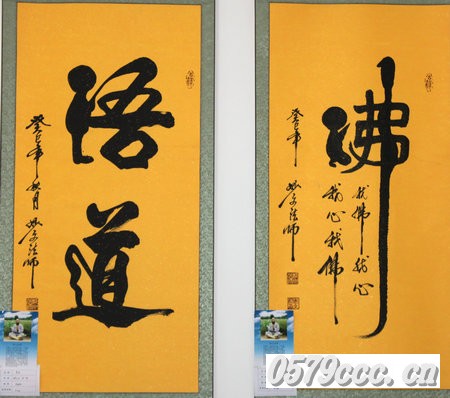 悟道
癸巳年秋月
法师
佛
我佛我心
我心我佛
癸巳年
法师
0579ccc.cn